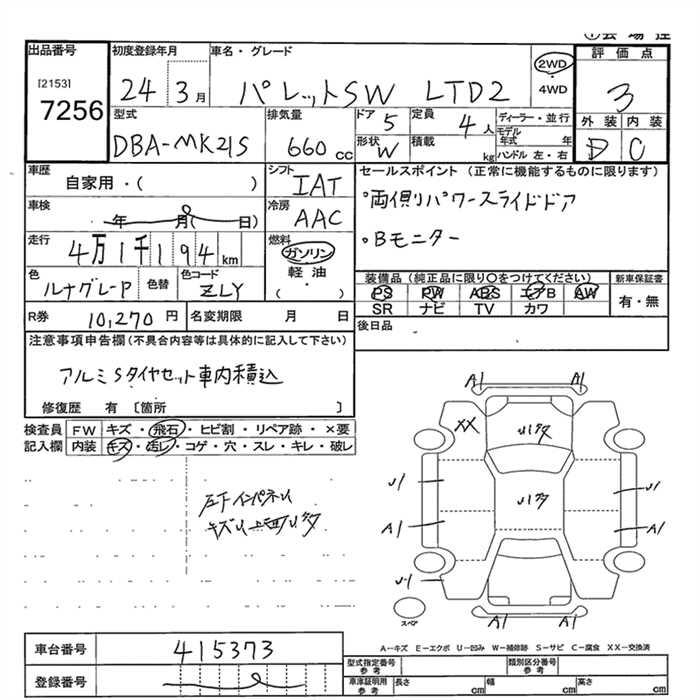 出品番号
[2153]
7256
初度登録年月
24 3月
車名・グレード
パレットSW LTD2
2WD
・
4WD
評価点
3
型式
DBA-MK21S
排気量
660 cc
ドア
5
定員
4人
ディーラー・並行
モデル年式 年
ハンドル 左・右
形状
W
積載
kg
外装 内装
D C
車歴
自家用・( )
シフト
IAT
セールスポイント (正常に機能するものに限ります)
°両側パワースライドドア
。Bモニター
車検
年 月( 日)
冷房
AAC
走行
4万1千194km
燃料
ガソリン
・
軽油
( )
色
ルナグレーP
色替
色コード
ZLY
装備品 (純正品に限り○をつけてください)
PS PW ABS エアB AW
SR ナビ TV カワ
新車保証書
有・無
R券 10,270 円
名変期限 月 日
後日品
注意事項申告欄 (不具合内容等は具体的に記入して下さい)
アルミSタイヤセット車内積込
修復歴 有 〔箇所 〕
検査員 FW キズ・飛石・ヒビ割・リペア跡・×要
記入欄 内装 キズ・汚レ・コゲ・穴・スレ・キレ・破レ
A1 A1
XX
U1 U1
A1 A1
U1
A1 A1
スペア
車台番号 415373
登録番号
A−キズ E−エクボ U−凹み W−補修跡 S−サビ C−腐食 XX−交換済
型式指定番号 参考
類別区分番号 参考
車庫証明用 参考
長さ cm
幅 cm
高さ cm